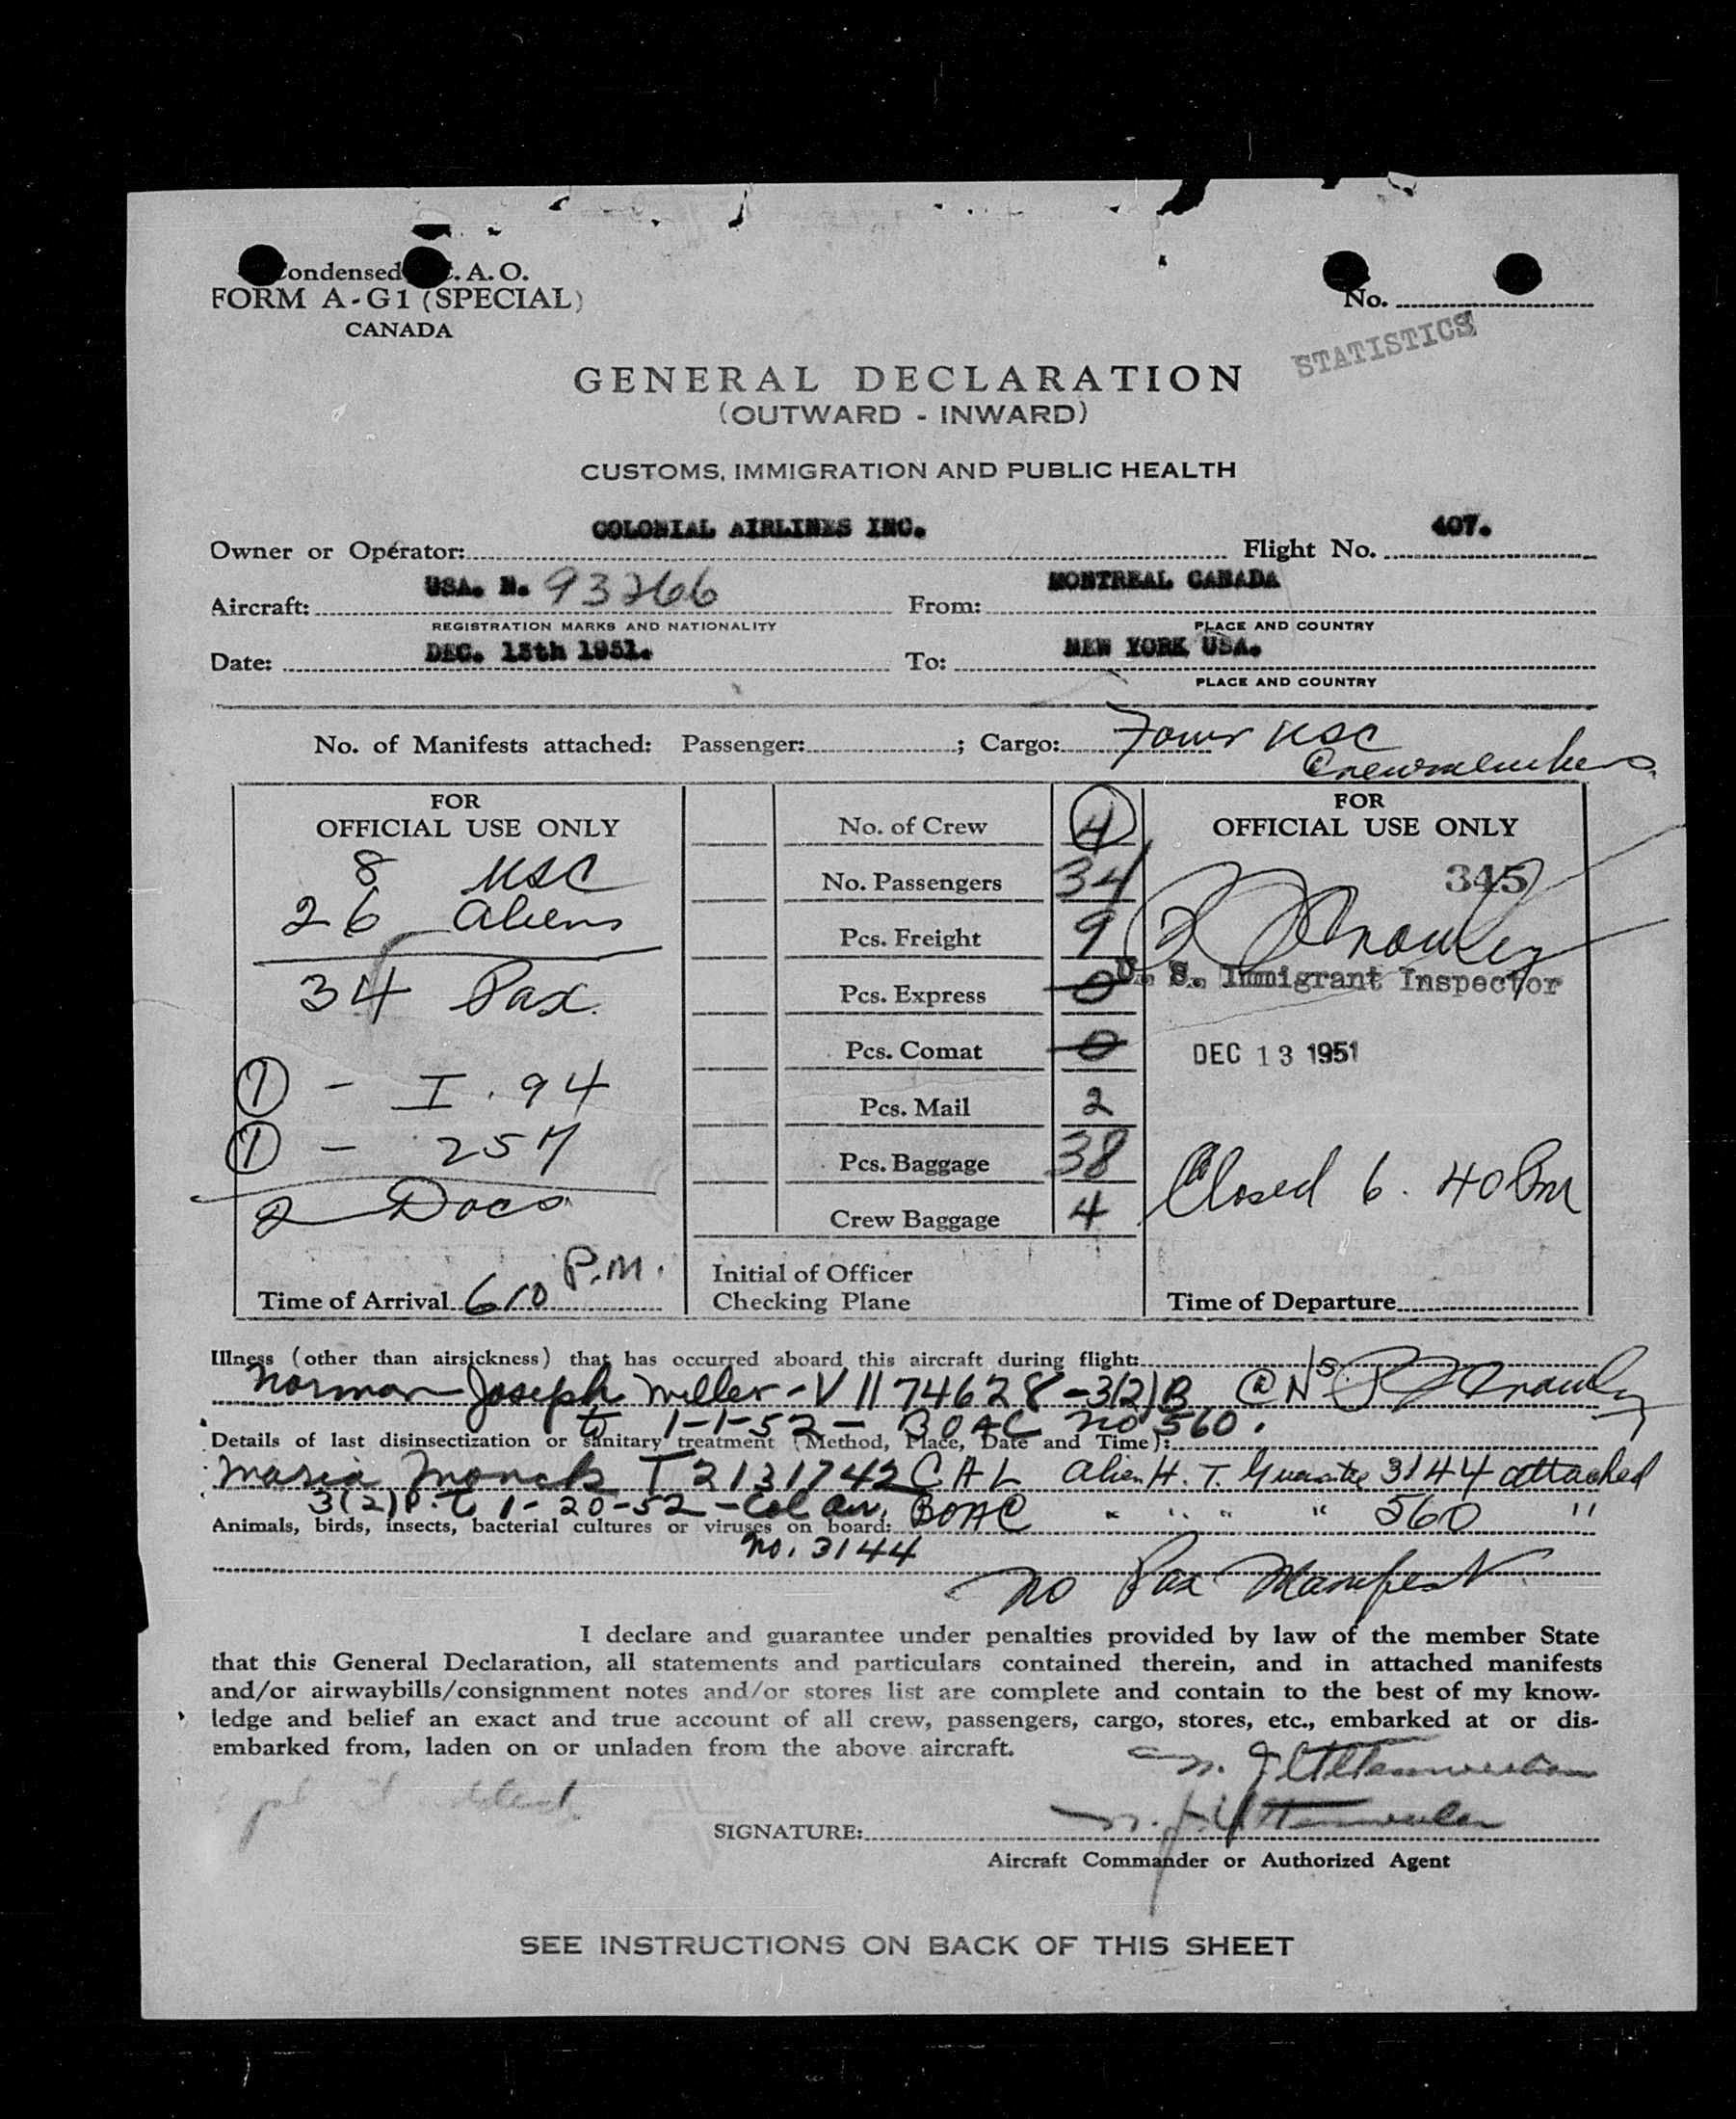 Condensed I.C.A.O.
FORM A-G1 (SPECIAL)
CANADA
No.
STATISTICS
GENERAL DECLARATION
(OUTWARD - INWARD)
CUSTOMS, IMMIGRATION AND PUBLIC HEALTH
Owner or Operator: COLONIAL AIRLINES INC. Flight No. 407.
Aircraft: USA. N. 93266 From: MONTREAL CANADA
REGISTRATION MARKS AND NATIONALITY PLACE AND COUNTRY
Date: DEC. 13th 1951. To: NEW YORK USA.
PLACE AND COUNTRY
No. of Manifests attached: Passenger: ; Cargo: Four USC
Crewmembers.
FOR
OFFICIAL USE ONLY
8 USC
26 Aliens
34 Pax.
1 - I.94
1 - 257
2 Docs
Time of Arrival 610 P.M.
No. of Crew 4
No. Passengers 34
Pcs. Freight 9
Pcs. Express 0
Pcs. Comat 0
Pcs. Mail 2
Pcs. Baggage 38
Crew Baggage 4
Initial of Officer
Checking Plane
FOR
OFFICIAL USE ONLY
345
U. S. Immigrant Inspector
DEC 13 1951
Closed 6.40 Pm
Time of Departure
Illness (other than airsickness) that has occurred aboard this aircraft during flight:
Norman Joseph Miller - V 1174628 - 3(2)B
to 1-1-52 - BOAC no 560.
Details of last disinsectization or sanitary treatment (Method, Place, Date and Time):
Maria T 2131742 CAL Alien H. T. Guarantee 3144 attached
3(2) to 1-20-52 - Col Air, BOAC " " " " 560 "
Animals, birds, insects, bacterial cultures or viruses on board:
no. 3144
no Pax Manifest.
I declare and guarantee under penalties provided by law of the member State
that this General Declaration, all statements and particulars contained therein, and in attached manifests
and/or airwaybills/consignment notes and/or stores list are complete and contain to the best of my know-
ledge and belief an exact and true account of all crew, passengers, cargo, stores, etc., embarked at or dis-
embarked from, laden on or unladen from the above aircraft.
SIGNATURE:
Aircraft Commander or Authorized Agent
SEE INSTRUCTIONS ON BACK OF THIS SHEET